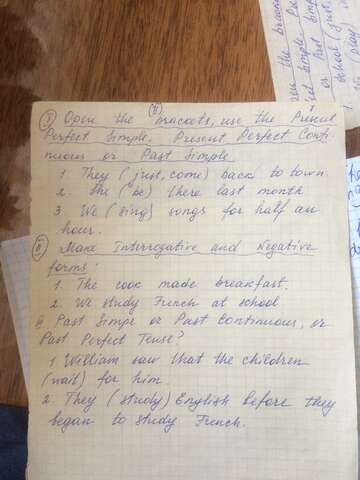 II
I Open the brackets, use the Present
Perfect Simple, Present Perfect Conti
nuous or Past Simple
1 They (just, come) back to town.
2. She (be) there last month
3 We (sing) songs for half an
hour.
II Make Interrogative and Negative
forms:
1. The cook made breakfast.
2. We study French at school
Past Simpe or Past Continuous, or
Past Perfect Tense?
1 William saw that the children
(wait) for him.
2. They (study) English before they
began to study French.